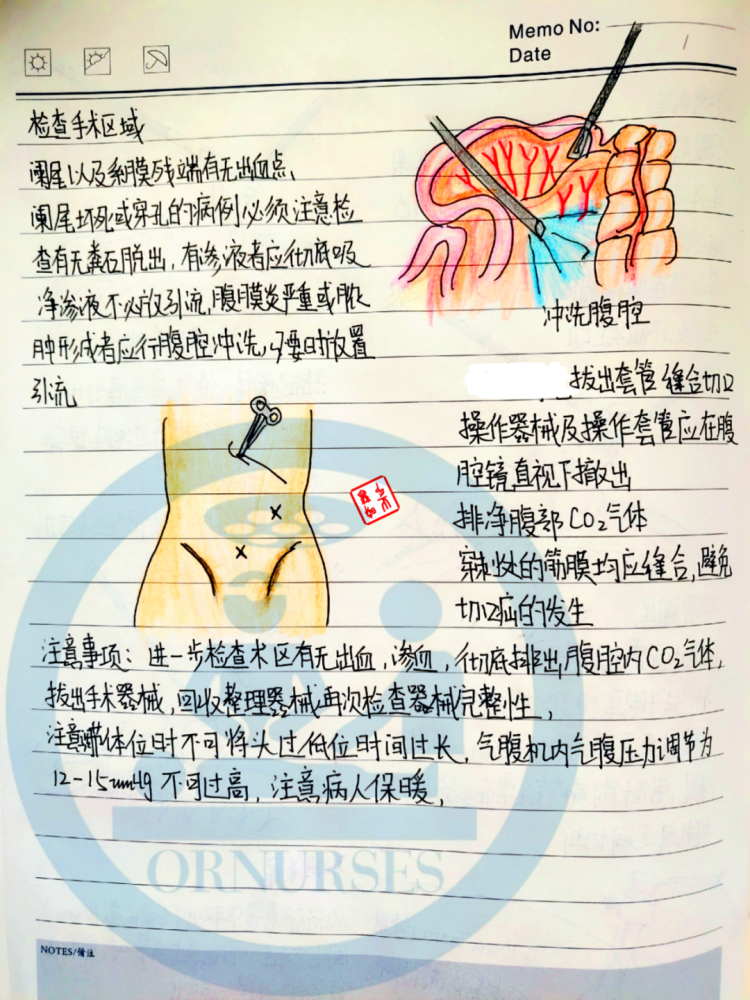 Memo No:
Date
检查手术区域
阑尾以及系膜残端有无出血点、
阑尾坏死或穿孔的病例必须注意检
查有无粪石脱出，有渗液者应彻底吸
净渗液不必放引流，腹膜炎严重或脓
肿形成者应行腹腔冲洗，必要时放置
引流
冲洗腹腔
拔出套管缝合切口
操作器械及操作套管应在腹
腔镜直视下撤出
排净腹部CO2气体
穿刺处的筋膜均应缝合，避免
切口疝的发生
注意事项：进一步检查术区有无出血，渗血，彻底排出腹腔内CO2气体，
拔出手术器械，回收整理器械再次检查器械完整性，
注意体位时不可将头过低位时间过长，气腹机内气腹压力调节为
12-15mmHg不可过高，注意病人保暖，
ORNURSES
NOTES/备注